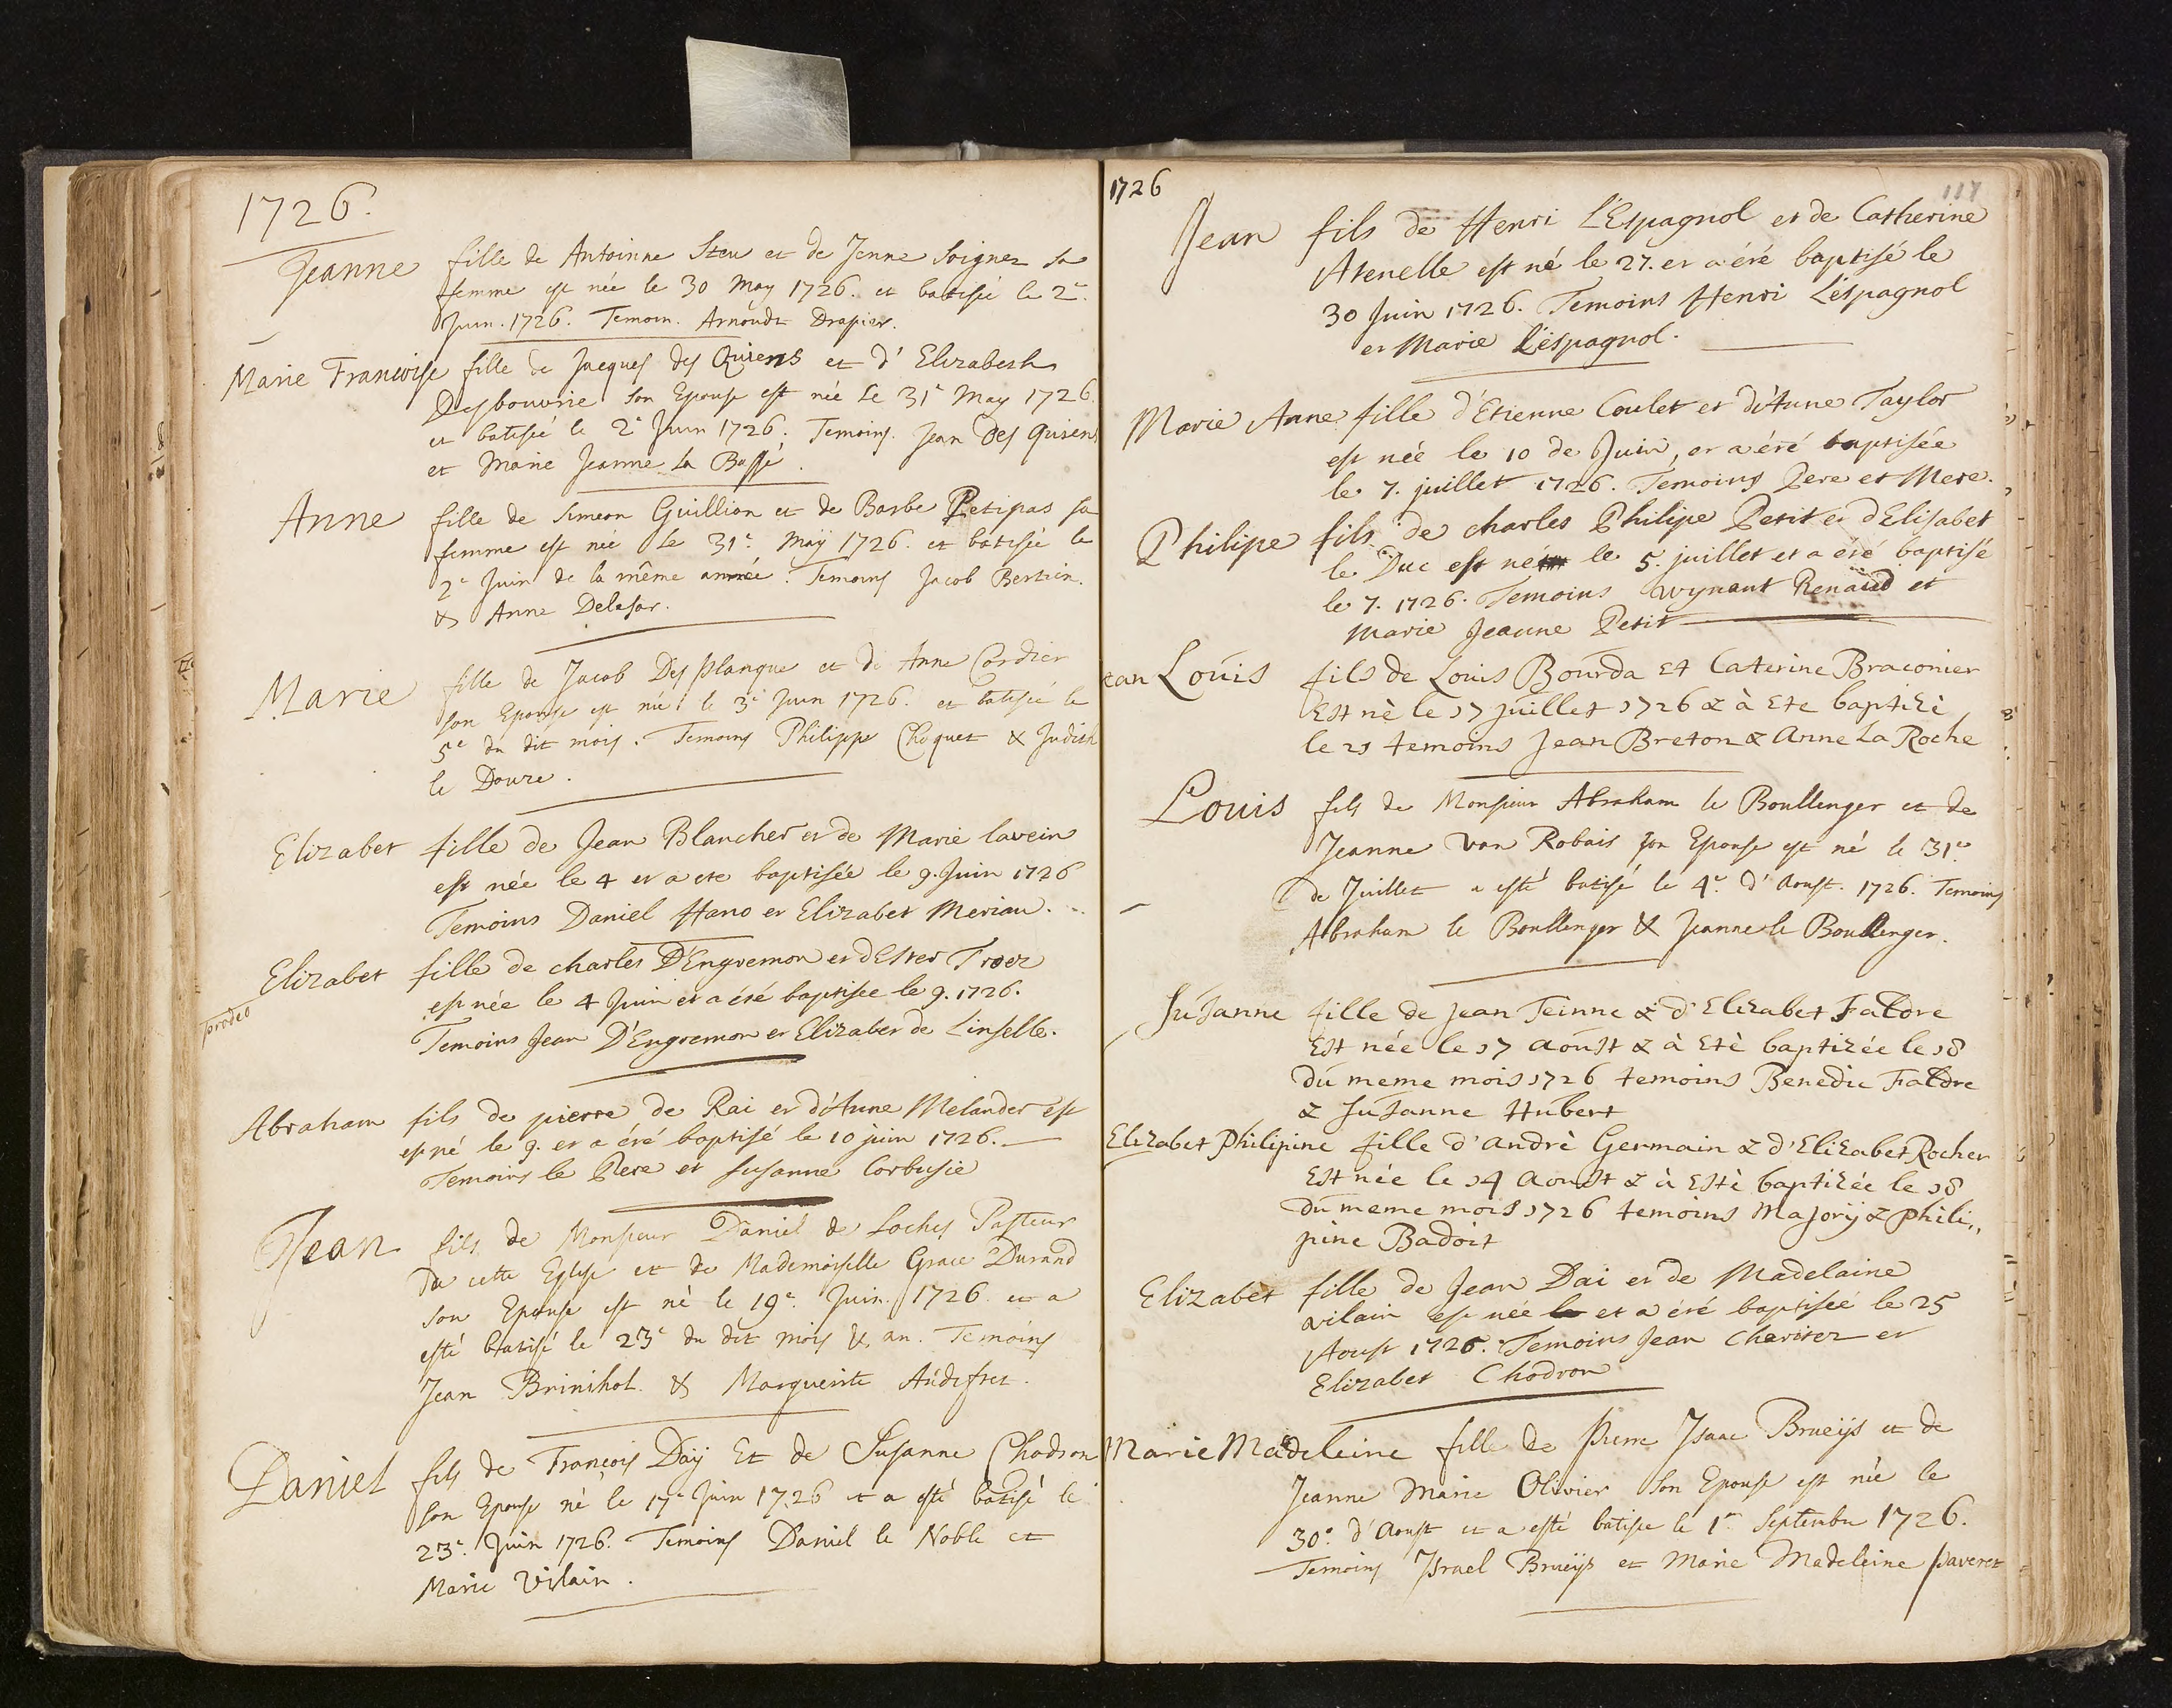 1726.
Jeanne fille de Antoinne Steu et de Jenne Soignez sa
femme est née le 30 May 1726. et batisée le 2e.
Juin. 1726. Temoin. Arnoudt Drapier.
Marie Francoise fille de Jacques des Quiens et d'Elizabeth
Desbouvrie son Epouse est née le 31e May 1726.
et batisée le 2e Juin 1726. Temoins. Jean Des Quiens
et Marie Jeanne La Bassé.
Anne fille de Simeon Guillion et de Barbe Petipas sa
femme est née le 31e. Maÿ 1726. et batisée le
2e Juin de la même année. Temoins Jacob Bertrin.
& Anne Delesar.
Marie fille de Jacob Des planque et de Anne Cordier
son Epouse est née le 3e Juin 1726. et batisée le
5e du dit mois. Temoins Philippe Choquet & Judith
le Douze.
Elizabet fille de Jean Blancher et de Marie lavein
est née le 4 et a ete baptisée le 9. Juin 1726
Temoins Daniel Hano et Elizabet Merian.
Elizabet fille de charles D'Engremon et d'Ester Troez
est née le 4 Juin et a été baptisee le 9. 1726.
Temoins Jean D'Engremon et Elizabet de Linselle.
Abraham fils de pierre de Rai et d'Anne Melander est
est né le 9. et a été baptisé le 10 juin 1726.
Temoins le Pere et Susanne Corbusie
Jean fils de Monsieur Daniel de Loches Pasteur
de cette Eglise et de Mademoiselle Grace Durand
son Epouse est né le 19e. Juin. 1726 et a
esté batisé le 23e du dit mois & an. Temoins
Jean Brinihol. & Marguerite Audefret.
Daniel fils de François Daÿ Et de Susanne Chodron
son Epouse né le 17e Juin 1726 et a esté batisé le
23e. Juin 1726. Temoins Daniel le Noble et
Marie Vilain.
1726
117
Jean fils de Henri L'Espagnol et de Catherine
Atenelle est né le 27. et a été baptisé le
30 Juin 1726. Temoins Henri L'éspagnol
et Marie L'éspagnol.
Marie Anne fille d'Etienne Coulet et d'Anne Taylor
est née le 10 de Juin, et a été baptisée
le 7. juillet 1726. Temoins Pere et Mere.
Philipe fils de charles Philipe Petit et d'Elisabet
le Duc est né le 5. juillet et a été baptisé
le 7. 1726. Temoins wynant Renaud et
Marie Jeanne Petit
ean Loüis fils de Louis Bourda et Caterine Braconier
Est nè le 17 juillet 1726 & à Ete baptizè
le 21 temoins Jean Breton & Anne La Roche
Louis fils de Monsieur Abraham le Boullenger et de
Jeanne van Robais son Epouse est né le 31e.
de Juillet a esté batisé le 4e. d'Aoust. 1726. Temoins
Abraham le Boullenger & Jeanne le Boullenger.
Suzanne fille de Jean Teinne & d'Elizabet Faldre
Est née le 17 Aoust & à Etè baptizée le 18
du meme mois 1726 temoins Benedic Faldre
& Suzanne Hubert
Elizabet Philipine fille d'Andrè Germain & d'Elizabet Rocher
Est née le 14 Aoust & à Estè baptizée le 18
du meme mois 1726 temoins Majorÿ & Phili,,
pine Badoit
Elizabet fille de Jean Dai et de Madelaine
vilain est née et a été baptisée le 25
Aoust 1726. Temoins Jean Cheritez et
Elizabet Chodron
Marie Madeleine fille de Pierre Isaac Brueÿs et de
Jeanne Marie Olivier son Epouse est née le
30e. d'Aoust et a esté batisee le 1er Septembre 1726.
Temoins Israel Brueÿs et Marie Madeleine paveret